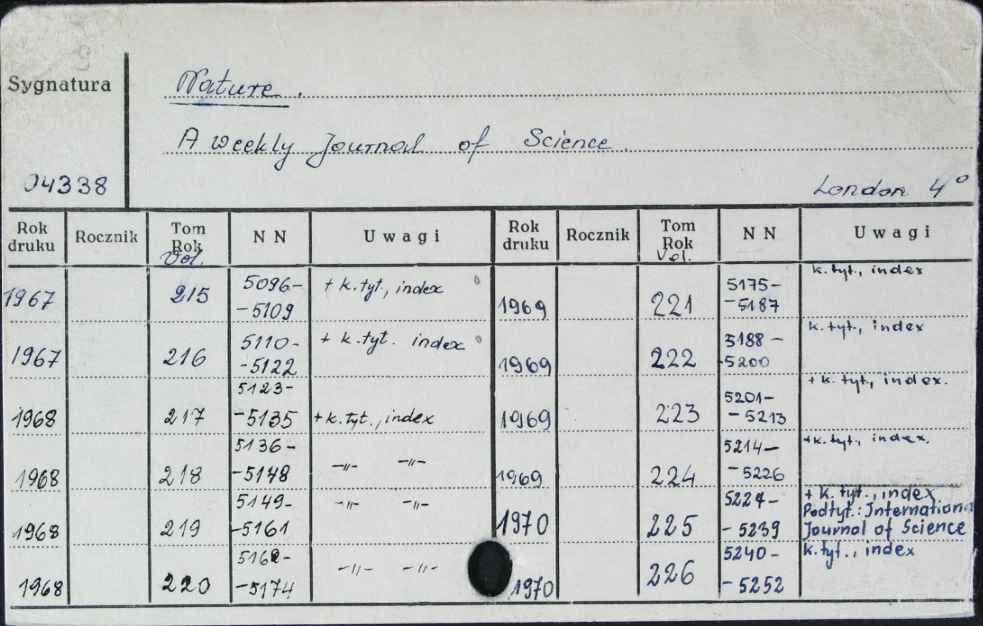 Sygnatura
Nature.
A weekly Journal of Science.
04338
London 4°
Rok druku Rocznik Tom Rok Vol. NN Uwagi Rok druku Rocznik Tom Rok Vol. NN Uwagi
1967 215 5096- -5109 + k.tyt., index
1967 216 5110- -5122 + k.tyt. index
1968 217 5123- -5135 + k.tyt., index
1968 218 5136- -5148 -"- -"-
1968 219 5149- -5161 -"- -"-
1968 220 5162- -5174 -"- -"-
1969 221 5175- -5187 k.tyt., index
1969 222 5188- -5200 k.tyt., index
1969 223 5201- -5213 + k.tyt., index.
1969 224 5214- -5226 +k.tyt., index.
1970 225 5227- -5239 + k.tyt., index Podtyt.: International Journal of Science
1970 226 5240- -5252 k.tyt., index